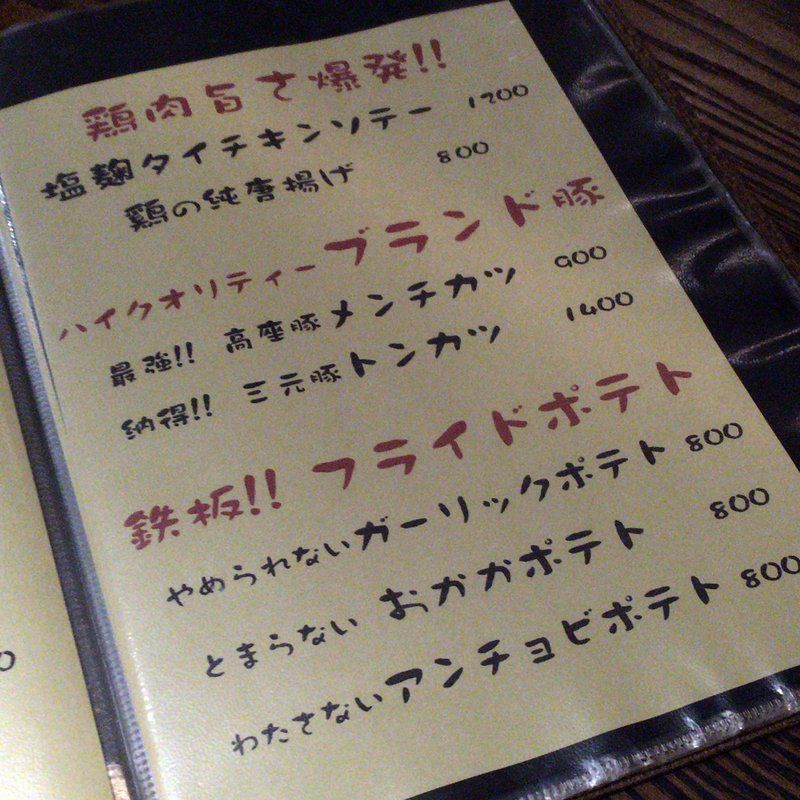 鶏肉旨さ爆発!!
塩麹タイチキンソテー 1200
鶏の純唐揚げ 800
ハイクオリティーブランド豚
最強!! 高座豚メンチカツ 900
納得!! 三元豚トンカツ 1400
鉄板!! フライドポテト
やめられないガーリックポテト 800
とまらない おかかポテト 800
わたさないアンチョビポテト 800